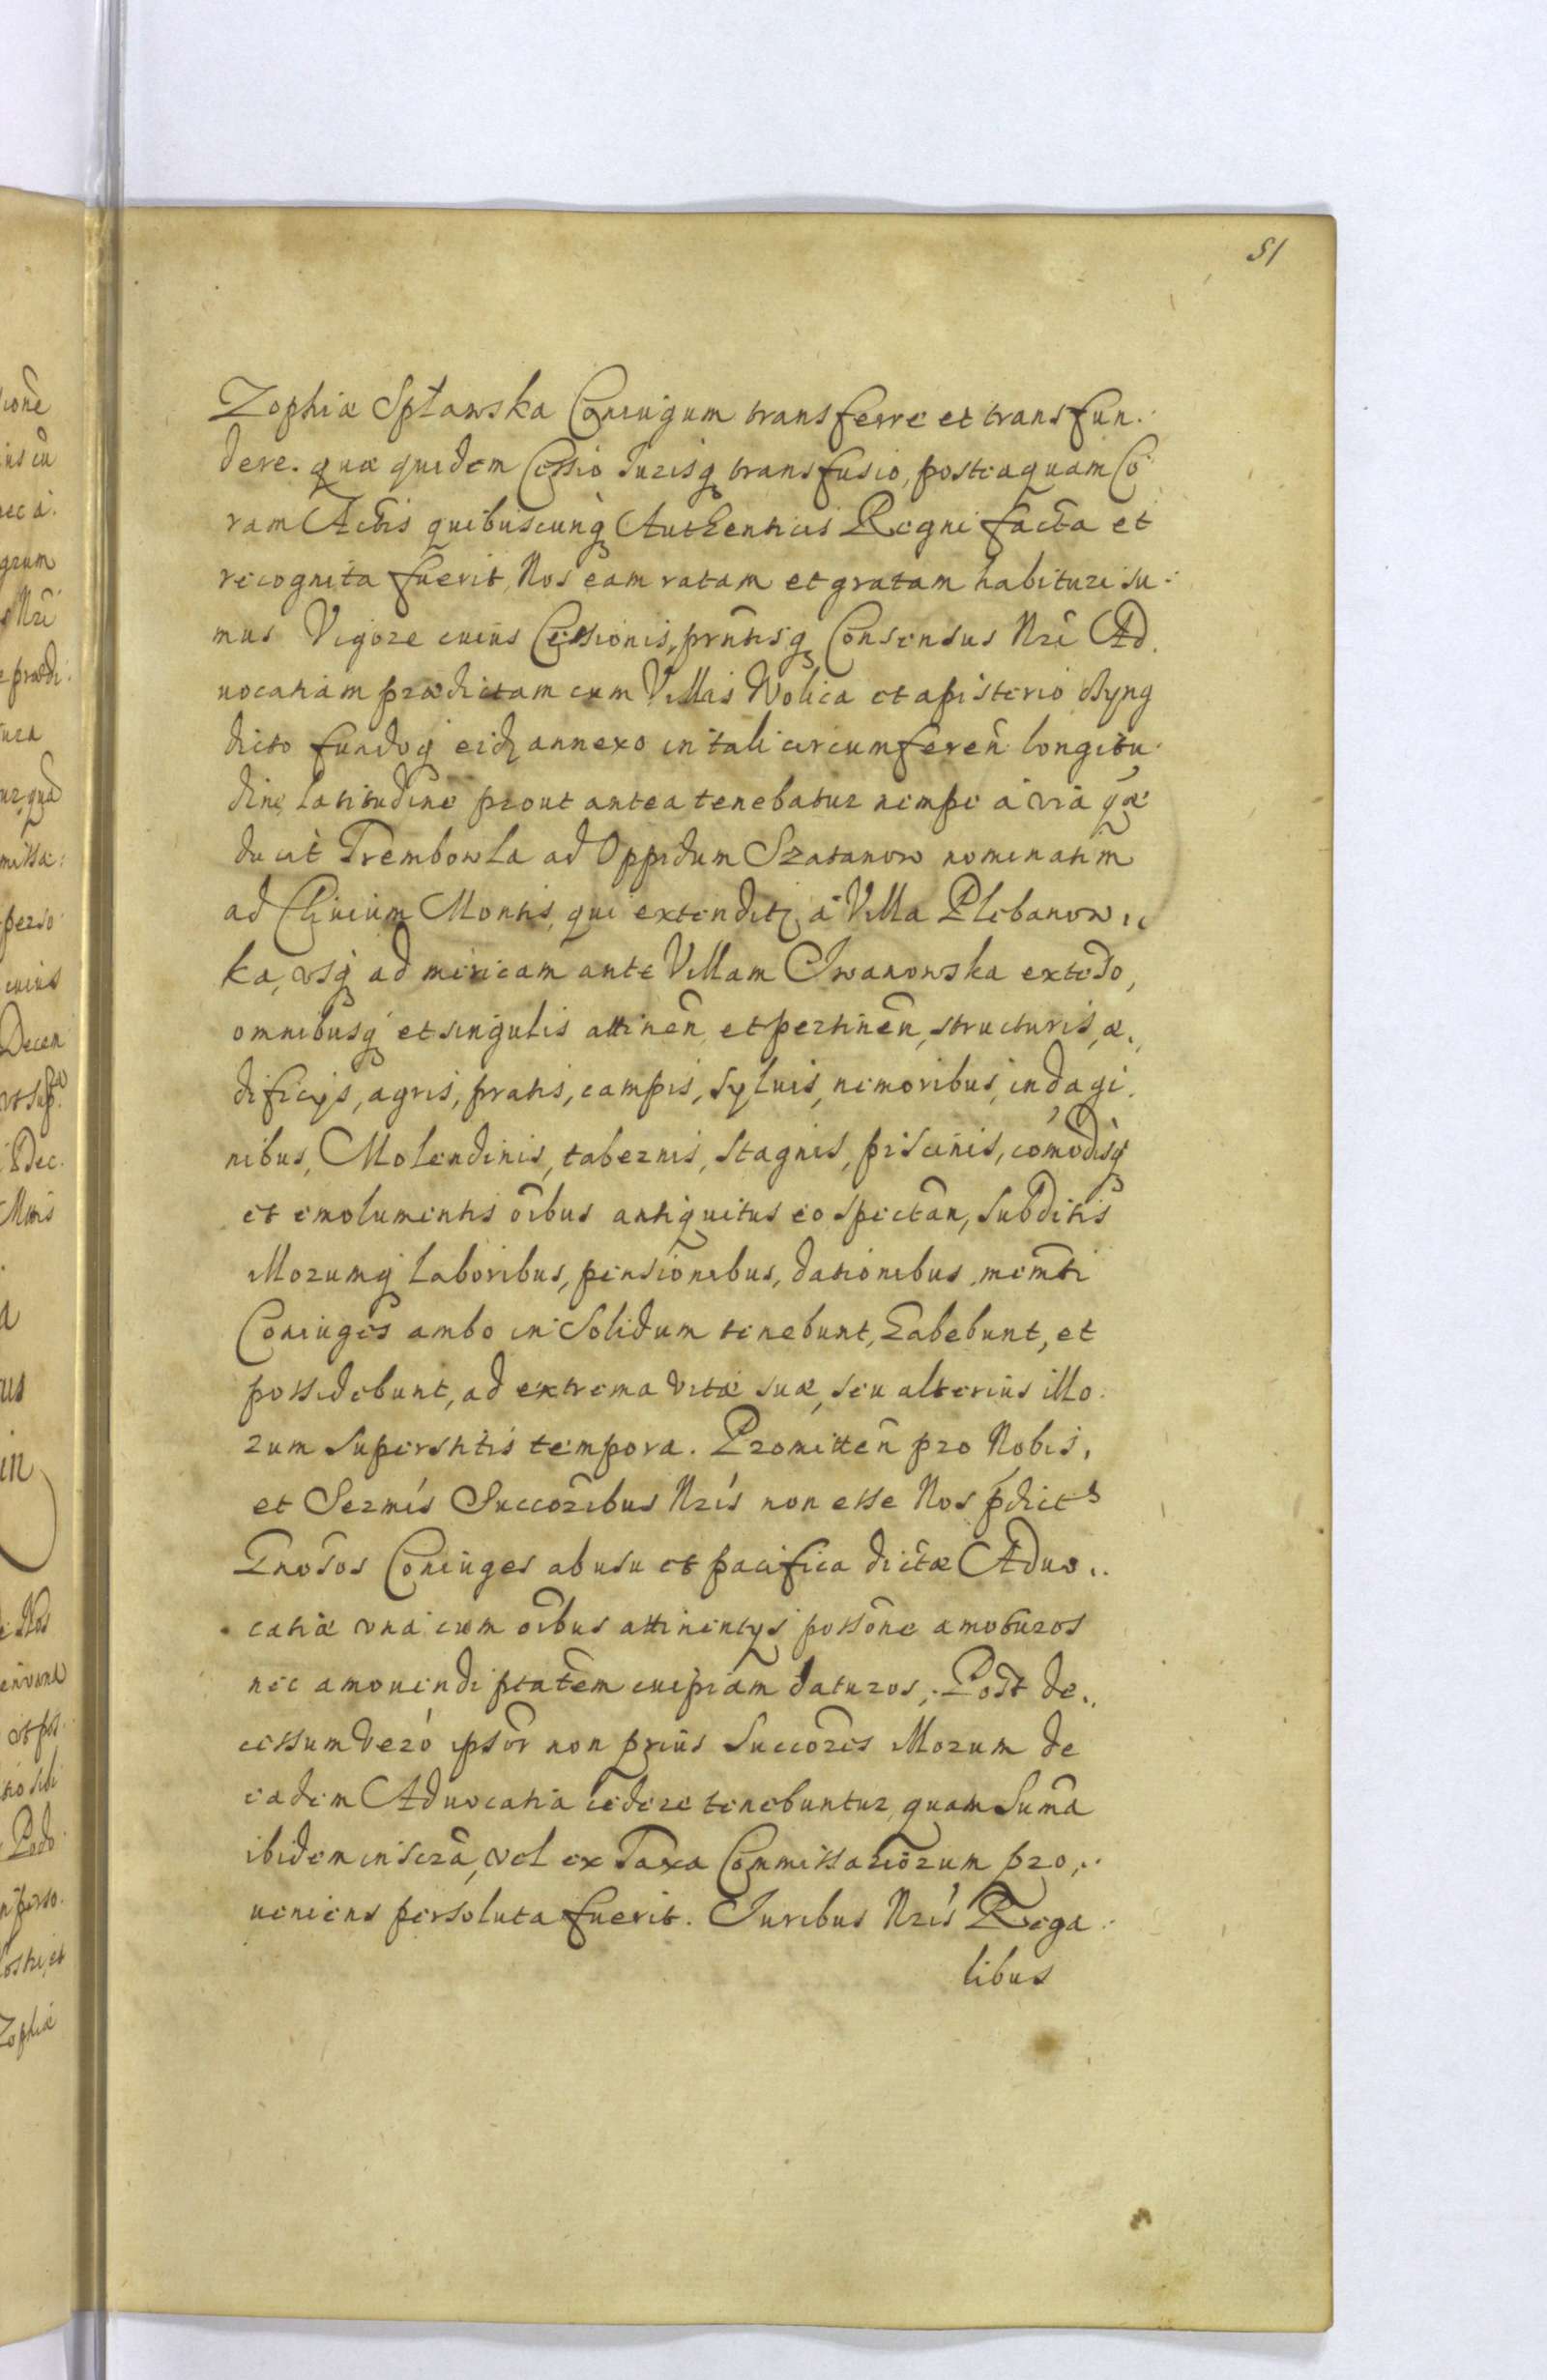 51
Zophiæ Spławska Coniugum transferre et transfun.
dere. quæ quidem Cessio Jurisq transfusio, posteaquam Co
ram Actis quibuscunq Authenticis Regni facta et
recognita fuerit, Nos eam ratam et gratam habituri su.
mus Vigore cuius Cessionis, prntisq Consensus Nri Ad.
uocatiam prædictam cum Villis Wolica et apisterio Ryng
dicto fundoq eidq annexo in tali circumferen longitu.
dine latitudine prout antea tenebatur nempe à via qæ
ducit Trembowla ad Oppidum Szatanow nominatim
ad Cliuium Montis, qui extenditq à Villa Plebanow,,
ka, vsq ad miricam ante Villam Iwanowska extedo,
omnibusq et singulis attinen, et pertinen, structuris, æ,,
dificijs, agris, pratis, campis, syluis, nemoribus, indagi.
nibus, Molendinis, tabernis, stagnis, piscinis, comodisq
et emolumentis oibus antiquitus eo spectan, subditis
Illorumq laboribus, pensionibus, dationibus, memti
Coniuges ambo in solidum tenebunt, habebunt, et
possidebunt, ad extrema vitæ suæ, seu alterius illo.
rum superstitis tempora. Promitten pro Nobis,
et Sermis Succoribus Nris non esse Nos pdict
Gnosos Coniuges ab usu et pacifica dictæ Aduo,,
catiæ vna cum oibus attinentijs possone amoturos
nec amouendi ptatem cuipiam daturos, Post de,,
cessum vero ipsor non prius Succores Illorum de
eadem Aduocatia cedere tenebuntur, quam suma
ibidem inscra, vel ex Taxa Commissariorum pro,,
ueniens persoluta fuerit. Iuribus Nris Rega.
libus